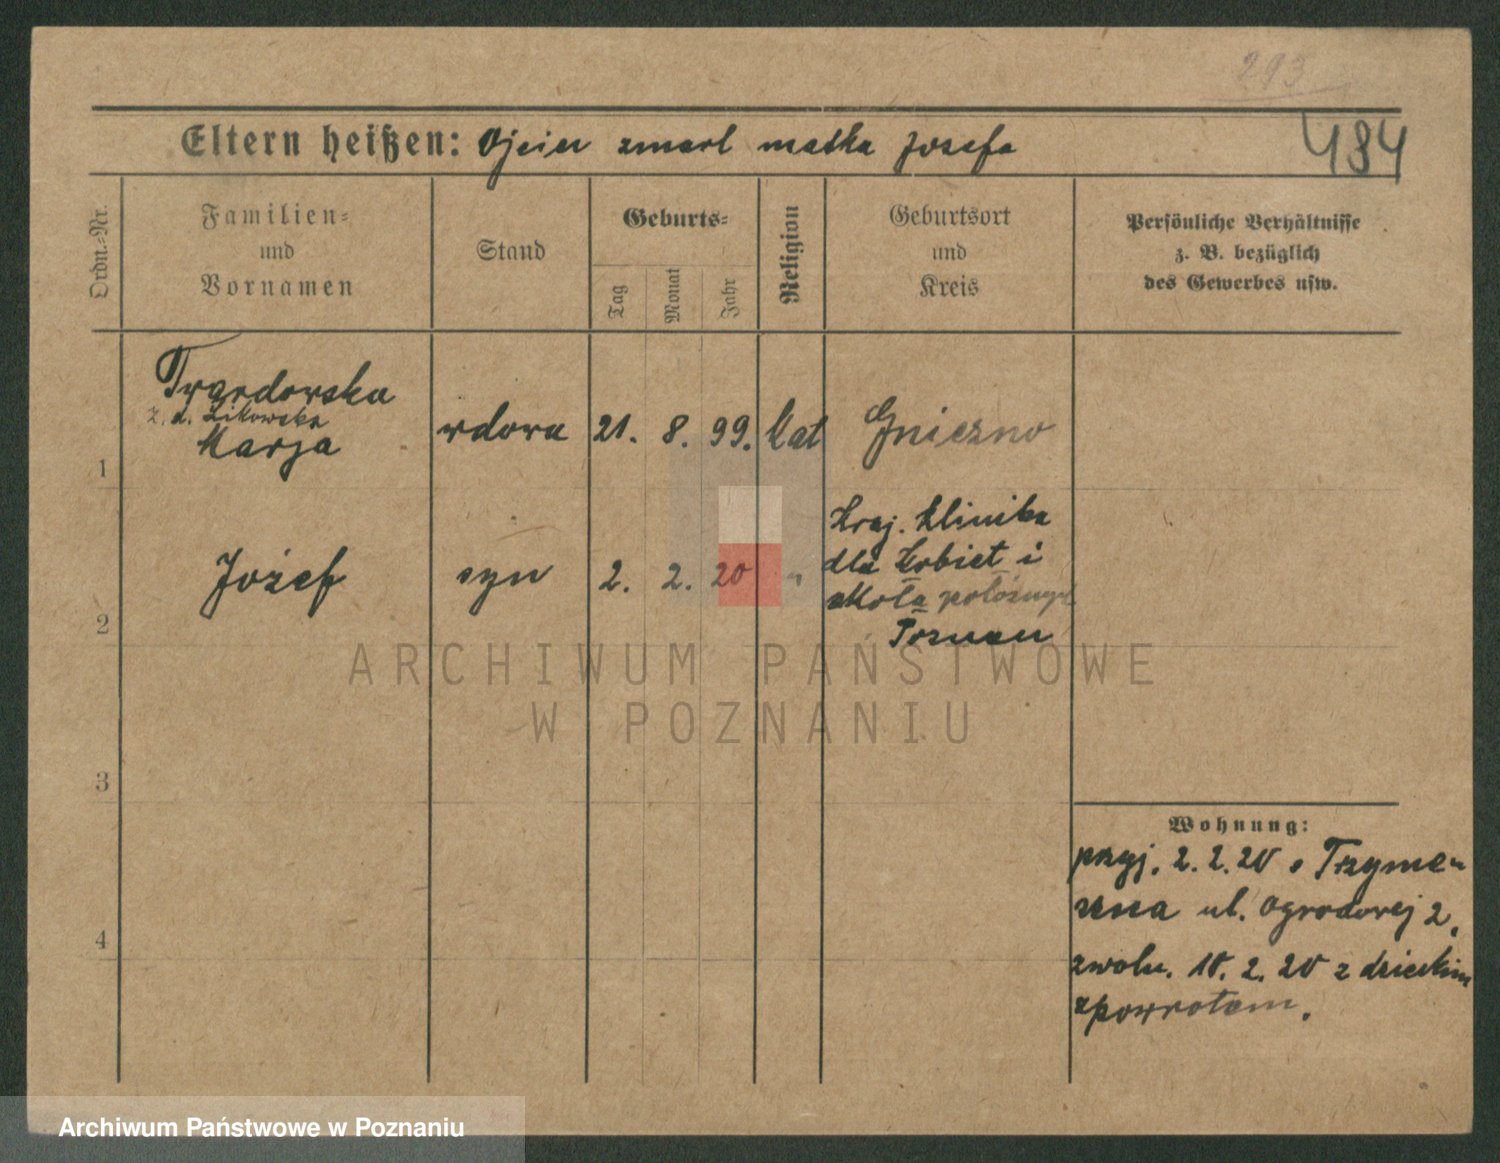 293
484
Eltern heißen: Ojciec zmarł matka Józefa
Ordn.-Nr.
Familien-
und
Vornamen
Stand
Geburts-
Tag
Monat
Jahr
Religion
Geburtsort
und
Kreis
Persönliche Verhältnisse
z. B. bezüglich
des Gewerbes usw.
Twardowska
z. d. Likowska
1 Marja wdowa 21. 8. 99. kat Gniezno
2 Józef syn 2. 2. 20 "
Kraj. Klinika
dla kobiet i
szkoła położnych
Poznań
3
4
Wohnung:
przyj. 2. 2. 20 z Trzeme-
szna ul. Ogrodowej 2,
zwoln. 10. 2. 20 z dzieckiem
z powrotem.
ARCHIWUM PAŃSTWOWE
W POZNANIU
Archiwum Państwowe w Poznaniu